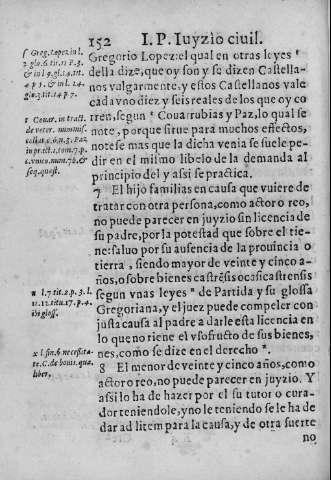 152 I. P. Iuyzio ciuil.
Gregorio Lopez: el qual en otras leyes
della dize, que oy son y se dizen Castella-
nos vulgarmente, y estos Castellanos vale
cada vno diez y seis reales de los que oy co
rren, segun ᵗ Couarrubias y Paz, lo qual se
note, porque sirue para muchos effectos,
notese mas que la dicha venia se suele pe-
dir en el mismo libelo de la demanda al
principio del y assi se practica.
7 El hijo familias en causa que vuiere de
tratar con otra persona, como actor o reo,
no puede parecer en juyzio sin licencia de
su padre, por la potestad que sobre el tie-
ne: saluo por su ausencia de la prouincia o
tierra, siendo mayor de veinte y cinco a-
ños, o sobre bienes castrēsis o casicastrensis
segun vnas leyes ᵘ de Partida y su glossa
Gregoriana, y el juez puede compeler con
justa causa al padre a darle esta licencia en
lo que no tiene el vsofructo de sus bienes,
nes, como se dize en el derecho ˣ.
8 El menor de veinte y cinco años, como
actor o reo, no puede parecer en juyzio. Y
assi lo ha de hazer por el su tutor o cura-
dor teniendole, y no le teniendo se le ha de
dar ad litem para la causa, y de otra suerte
no
ſ Greg. Lopez in l.
2 glo. 6. tit. 11 P. 3.
& in l. 9. gl. 1. tit.
t Couar. in tract.
de veter. nummis.
u l. 7 tit. 2. p. 3. l.
11. 12. titu. 17. p. 4.
ibi gloss.
x l fin. § necessita-
te. C. de bonis. quæ
liber.